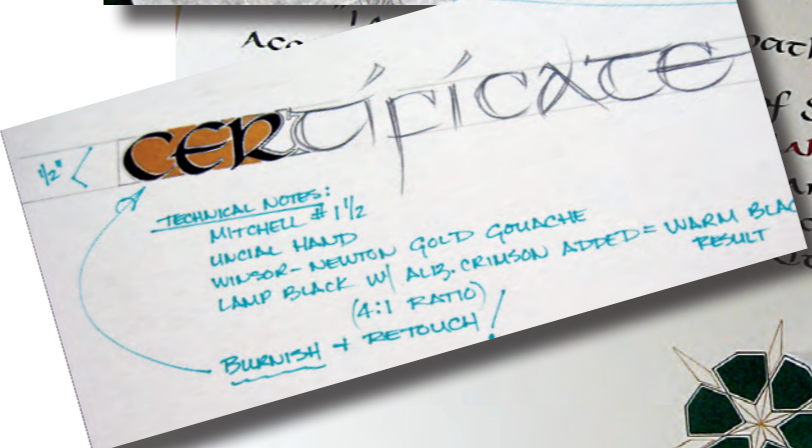 CERTIFICATE
1/2"
TECHNICAL NOTES:
MITCHELL # 1 1/2
UNCIAL HAND
WINSOR-NEWTON GOLD GOUACHE
LAMP BLACK W/ ALIZ. CRIMSON ADDED = WARM BLAC
RESULT
(4:1 RATIO)
BURNISH + RETOUCH!